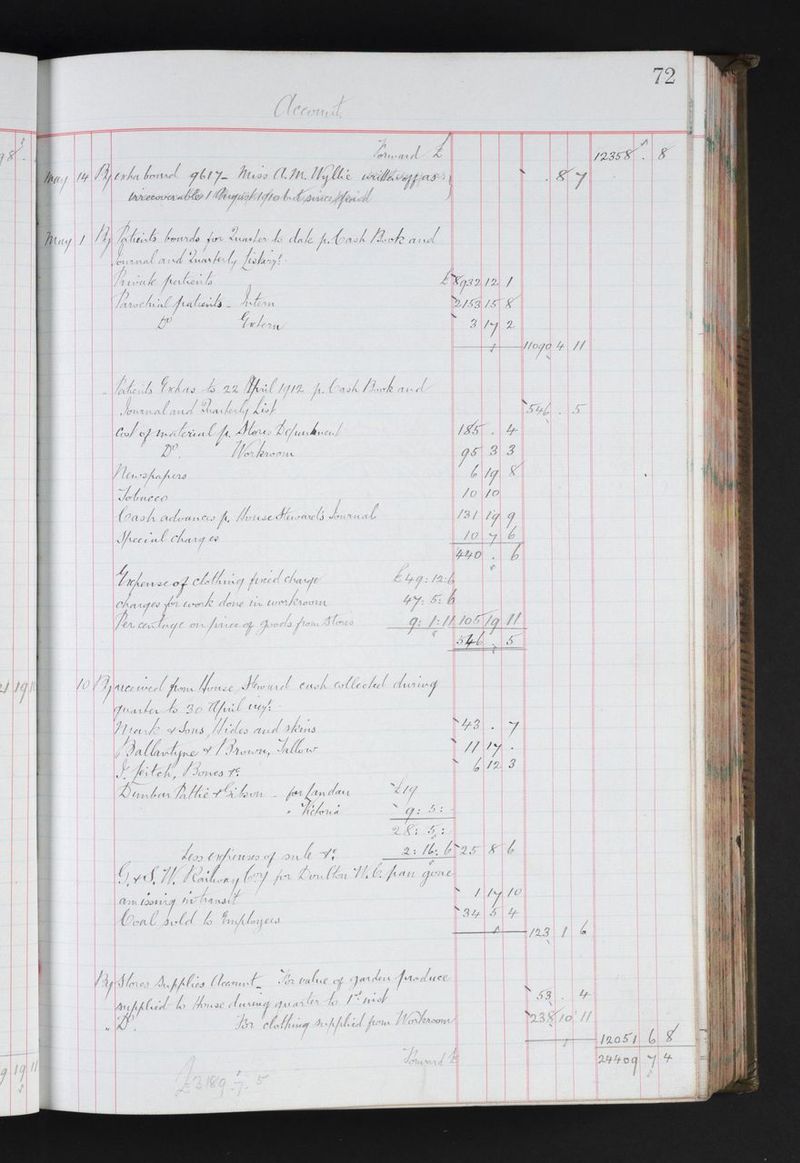 72
Account
Forward £ 12358 . 8
May 14 By extra board 9617 - Miss A. M. Wyllie written off as . 8 7
irrecoverable 1 August 1910 but since paid
May 1 By Patients boards for Quarter to date p. Cash Book and
Journal and Quarterly List viz:
Private patients £8932 12 1
Parochial patients - Intern 2153 15 8
Do Extern 3 17 2
11090 4 11
Patients Extras to 22 April 1912 p. Cash Book and
Journal and Quarterly List 546 . 5
Cost of material p. Stores Department 185 . 4
Do. Workroom 95 3 3
Newspapers 6 19 8
Tobacco 10 10
Cash advances p. House Steward's Journal 131 19 9
Special charges 10 7 6
440 . 6
Expense of clothing fixed charge £49:12:6
charges for work done in workroom 47: 5: 6
Per centage on price of goods from Stores 9: 1: 11 105 19 11
546 . 5
10 By received from House Steward cash collected during
quarter to 30 April viz:-
Mark & Sons, Hides and skins 43 . 7
Ballantyne & Brown, Tallow 11 17 .
J. Leitch, Bones &c 6 12 3
Dunbar Pattie & Gibson - for Landau £19
" Victoria 9: 5: -
28: 5: -
Less expenses of sale &c 2: 16: 6 25 8 6
G. & S. W. Railway Coy for Doulton W.C. pan gone
amissing in transit 1 17 10
Coal sold to Employees 34 5 4
123 1 6
By Stores Supplies Account - For value of garden produce
supplied to House during quarter to 1st inst 53 . 4
" Do. For clothing supplied from Workroom 238 10 11
12051 6 8
Forward £ 24409 7 4
£3189 . 7 . 5